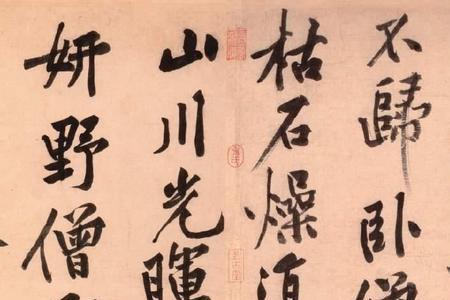 不歸臥僧
枯石燥復
山川光暉
妍野僧